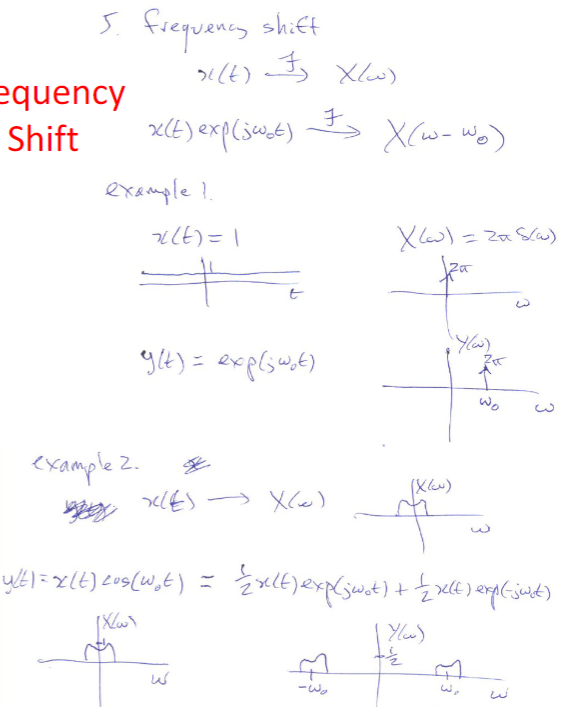 5. frequency shift
x(t) —ℱ→ X(ω)
equency
Shift
x(t) exp(jω₀t) —ℱ→ X(ω - ω₀)
example 1.
x(t) = 1
X(ω) = 2π δ(ω)
1
t
2π
ω
y(t) = exp(jω₀t)
Y(ω)
2π
ω₀
ω
example 2.
x(t) → X(ω)
X(ω)
ω
y(t) = x(t) cos(ω₀t) = ½ x(t) exp(jω₀t) + ½ x(t) exp(-jω₀t)
X(ω)
1
ω
Y(ω)
½
-ω₀
ω₀
ω